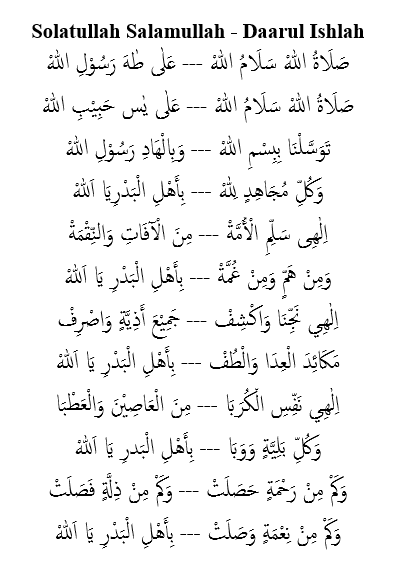 Solatullah Salamullah - Daarul Ishlah
صَلَاةُ اللهْ سَلَامُ اللهْ --- عَلٰى طٰهَ رَسُوْلِ اللهْ
صَلَاةُ اللهْ سَلَامُ اللهْ --- عَلٰى يٰس حَبِيْبِ اللهْ
تَوَسَّلْنَا بِبِسْمِ اللهْ --- وَبِالْهَادِ رَسُوْلِ اللهْ
وَكُلِّ مُجَاهِدٍ لِلهْ --- بِأَهْلِ الْبَدْرِيَا اَللهْ
اِلٰهِى سَلِّمِ الْأُمَّةْ --- مِنَ الْآفَاتِ وَالنِّقْمَةْ
وَمِنْ هَمٍّ وَمِنْ غُمَّةْ --- بِأَهْلِ الْبَدْرِ يَا اَللهْ
اِلٰهِي نَجِّنَا وَاكْشِفْ --- جَمِيْعَ أَذِيَّةٍ وَاصْرِفْ
مَكَائِدَ الْعِدَا وَالْطُفْ --- بِأَهْلِ الْبَدْرِ يَا اَللهْ
اِلٰهِي نَفِّسِ الْكُرَبَا --- مِنَ الْعَاصِيْنَ وَالْعَطْبَا
وَكُلِّ بَلِيَّةٍ وَوَبَا --- بِأَهْلِ الْبَدرِ يَا اَللهْ
وَكَمْ مِنْ رَحْمَةٍ حَصَلَتْ --- وَكَمْ مِنْ ذِلَّةٍ فَصَلَتْ
وَكَمْ مِنْ نِعْمَةٍ وَصَلَتْ --- بِأَهْلِ الْبَدْرِ يَا اَللهْ